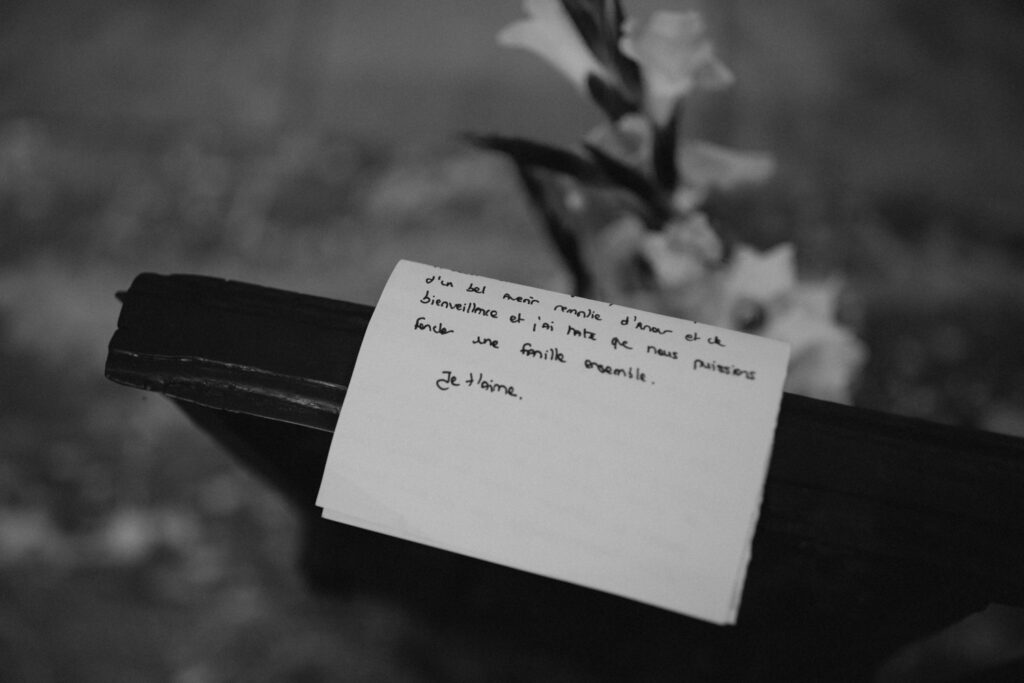 d'un bel avenir remplie d'Amour et de
bienveillance et j'ai hate que nous puissions
fonder une famille ensemble.
Je t'aime.